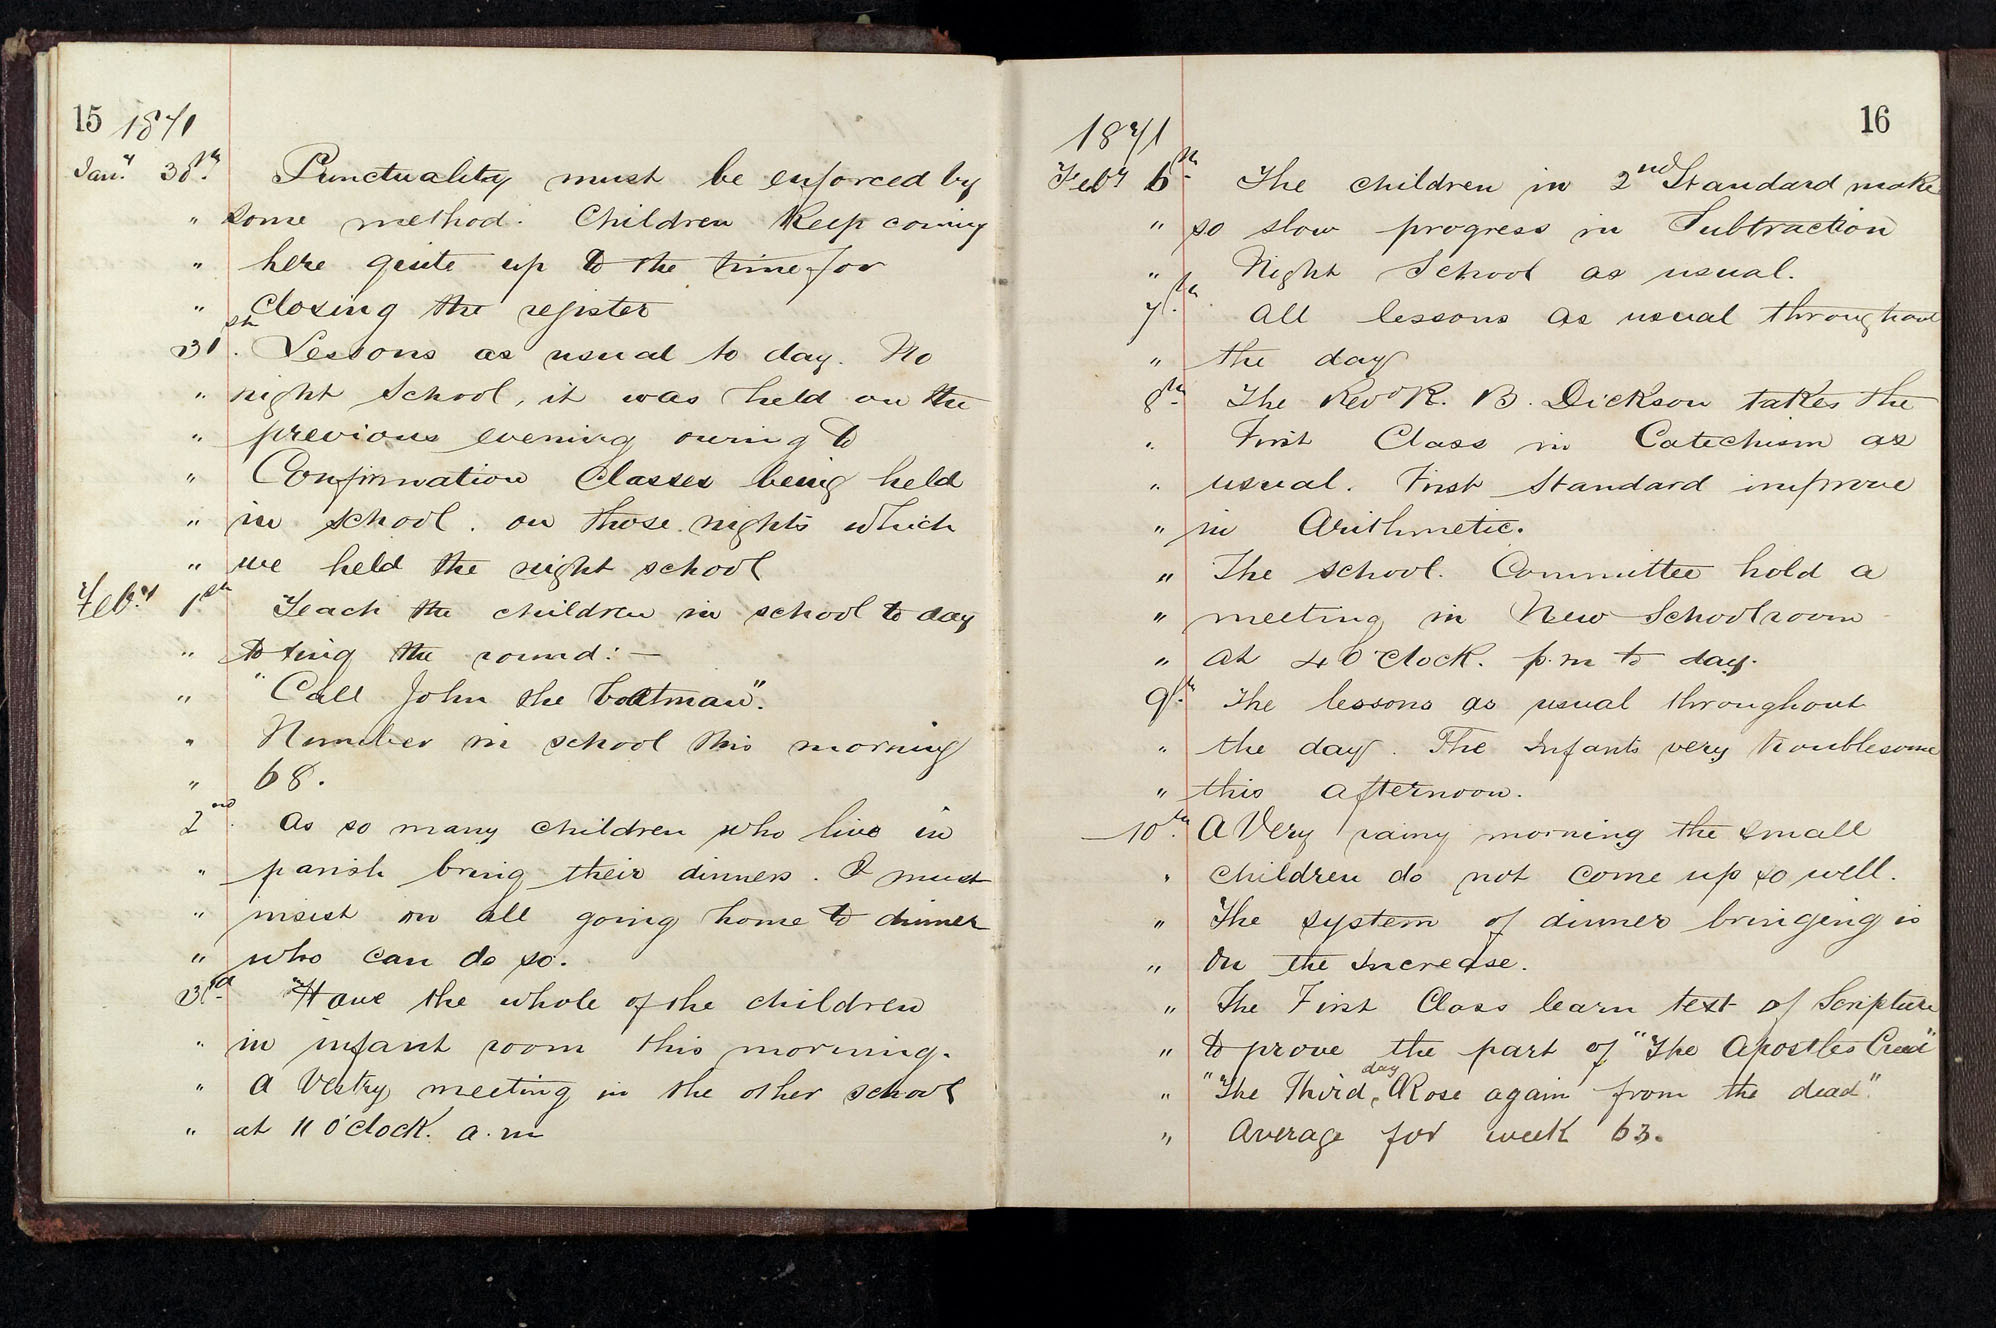 15 1871
Jany 30th. Punctuality must be enforced by
" some method. Children keep coming
" here quite up to the time for
" closing the register
31st. Lessons as usual to day. No
" night School, it was held on the
" previous evening owing to
" Confirmation Classes being held
" in school. on those nights which
" we held the night school
Feby 1st Teach the children in school to day
" to sing the round:—
" "Call John the boatman".
" Number in school this morning
" 68.
2nd. As so many children who live in
" parish bring their dinners. I must
" insist on all going home to dinner
" who can do so.
3rd. Have the whole of the children
" in infant room this morning.
" A Vestry meeting in the other school
" at 11 O'Clock. a.m
16
1871
Feby 6th The children in 2nd Standard make
" so slow progress in Subtraction
" Night School as usual.
7th. All lessons as usual throughout
" the day
8th The Revd R. B. Dickson takes the
" First Class in Catechism as
" usual. First Standard improve
" in Arithmetic.
" The school. Committee hold a
" meeting in New Schoolroom
" at 4 O'Clock. p.m to day.
9th. The lessons as usual throughout
" the day. The Infants very troublesome
" this afternoon.
10th. A Very rainy morning the small
" children do not come up so well.
" The system of dinner bringing is
" On the Increase.
" The First Class learn text of Scripture
" to prove the part of "The Apostles Creed"
" "The Third day Rose again from the dead".
" Average for week 63.